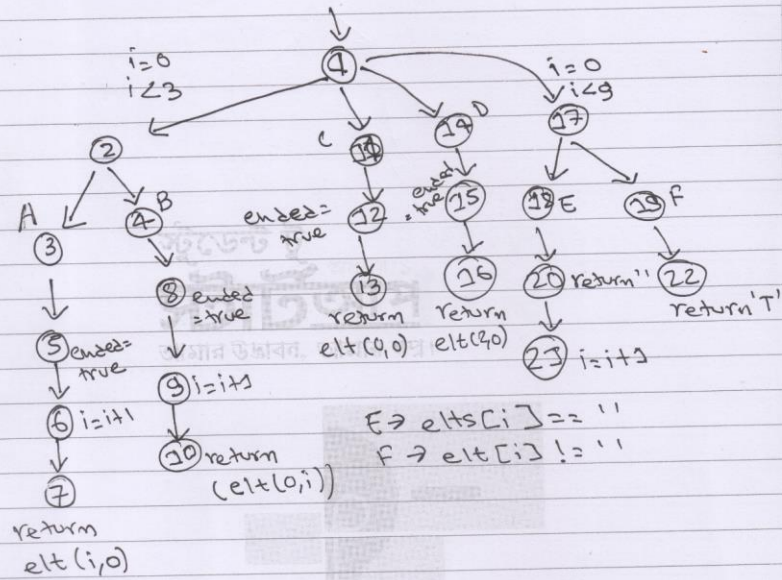 i=0
i<3
1
i=0
i<9
2
C 11
14 D
17
A
3
4 B
ended=
true
12
ended
=true
15
18 E
19 F
8 ended
=true
13
return
elt(0,0)
16
return
elt(2,0)
20 return''
22
return'T'
5 ended=
true
23 i=i+1
9 i=i+1
6 i=i+1
10 return
(elt(0,i))
E→ elts[i]==''
F→ elt[i]!=''
7
return
elt(i,0)
স্টুডেন্ট টু
স্টার্টআপ
আমার উদ্ভাবন,